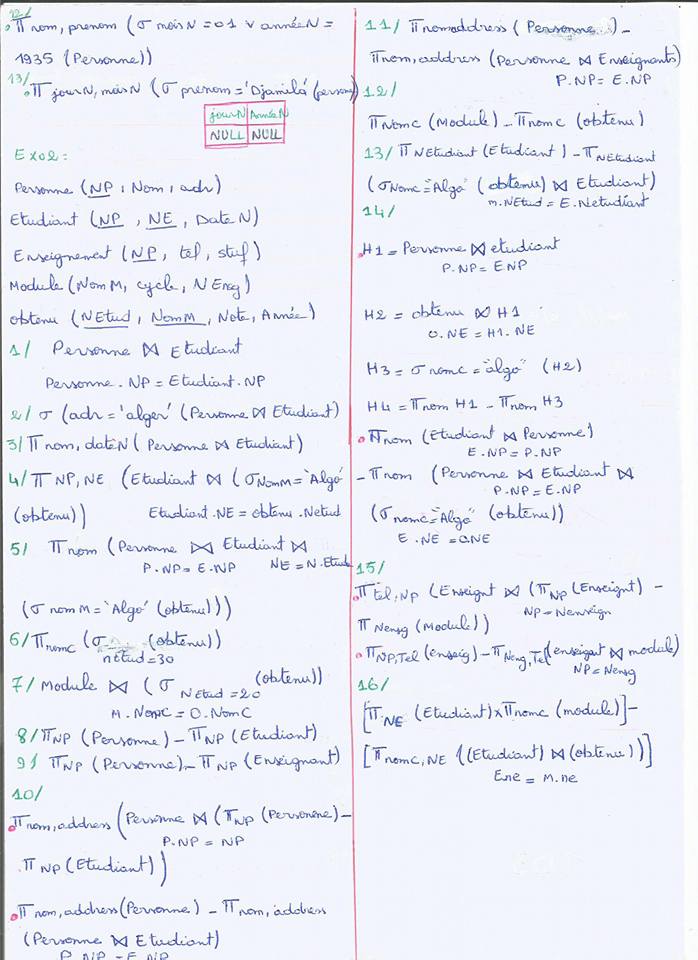 12/
Π nom, prenom (σ moisN = 01 ∨ annéeN =
1935 (Personne))
13/
Π jourN, moisN (σ prenom = 'Djamila' (personne)
jourN AnnéeN
NULL NULL
Exo2:
Personne (NP, Nom, adr)
Etudiant (NP, NE, DateN)
Enseignement (NP, tel, stuf)
Module (NomM, cycle, NEnsg)
obtenu (NEtud, NomM, Note, Année)
1/ Personne ⋈ Etudiant
Personne.NP = Etudiant.NP
2/ σ (adr = 'alger' (Personne ⋈ Etudiant)
3/ Π nom, dateN (Personne ⋈ Etudiant)
4/ Π NP, NE (Etudiant ⋈ (σ NomM = 'Algo'
(obtenu)) Etudiant.NE = obtenu.Netud
5/ Π nom (Personne ⋈ Etudiant ⋈
P.NP = E.NP NE = N.Etud
(σ nomM = 'Algo' (obtenu)))
6/ Π nomc (σ (obtenu))
nétud = 30
7/ Module ⋈ (σ NEtud = 20 (obtenu))
M.NomC = O.NomC
8/ Π NP (Personne) - Π NP (Etudiant)
9/ Π NP (Personne) - Π NP (Enseignant)
10/
Π nom, address (Personne ⋈ (Π NP (Personene) -
P.NP = NP
Π NP (Etudiant))
Π nom, address (Personne) - Π nom, address
(Personne ⋈ Etudiant)
P.NP = E.NP
11/ Π nomaddress (Personne) -
Π nom, address (Personne ⋈ Enseignants)
P.NP = E.NP
12/
Π nomc (Module) - Π nomc (obtenu)
13/ Π NEtudiant (Etudiant) - Π NEtudiant
(σ Nomc = "Algo" (obtenu) ⋈ Etudiant)
m.NEtud = E.Netudiant
14/
H1 = Personne ⋈ etudiant
P.NP = E.NP
H2 = obtenu ⋈ H1
O.NE = H1.NE
H3 = σ nomc = "algo" (H2)
H4 = Π nom H1 - Π nom H3
Π nom (Etudiant ⋈ Personne)
E.NP = P.NP
- Π nom (Personne ⋈ Etudiant ⋈
P.NP = E.NP
(σ nomc = "Algo" (obtenu))
E.NE = O.NE
15/
Π tel, Np (Enseignt ⋈ (Π NP (Enseignt) -
NP = Nenseign
Π Nensg (Module))
Π NP, Tel (enseig) - Π Neng, Tel (enseignt ⋈ module)
NP = Nensg
16/
[Π NE (Etudiant) x Π nomc (module)] -
[Π nomc, NE ((Etudiant) ⋈ (obtenu))]
E.ne = m.ne